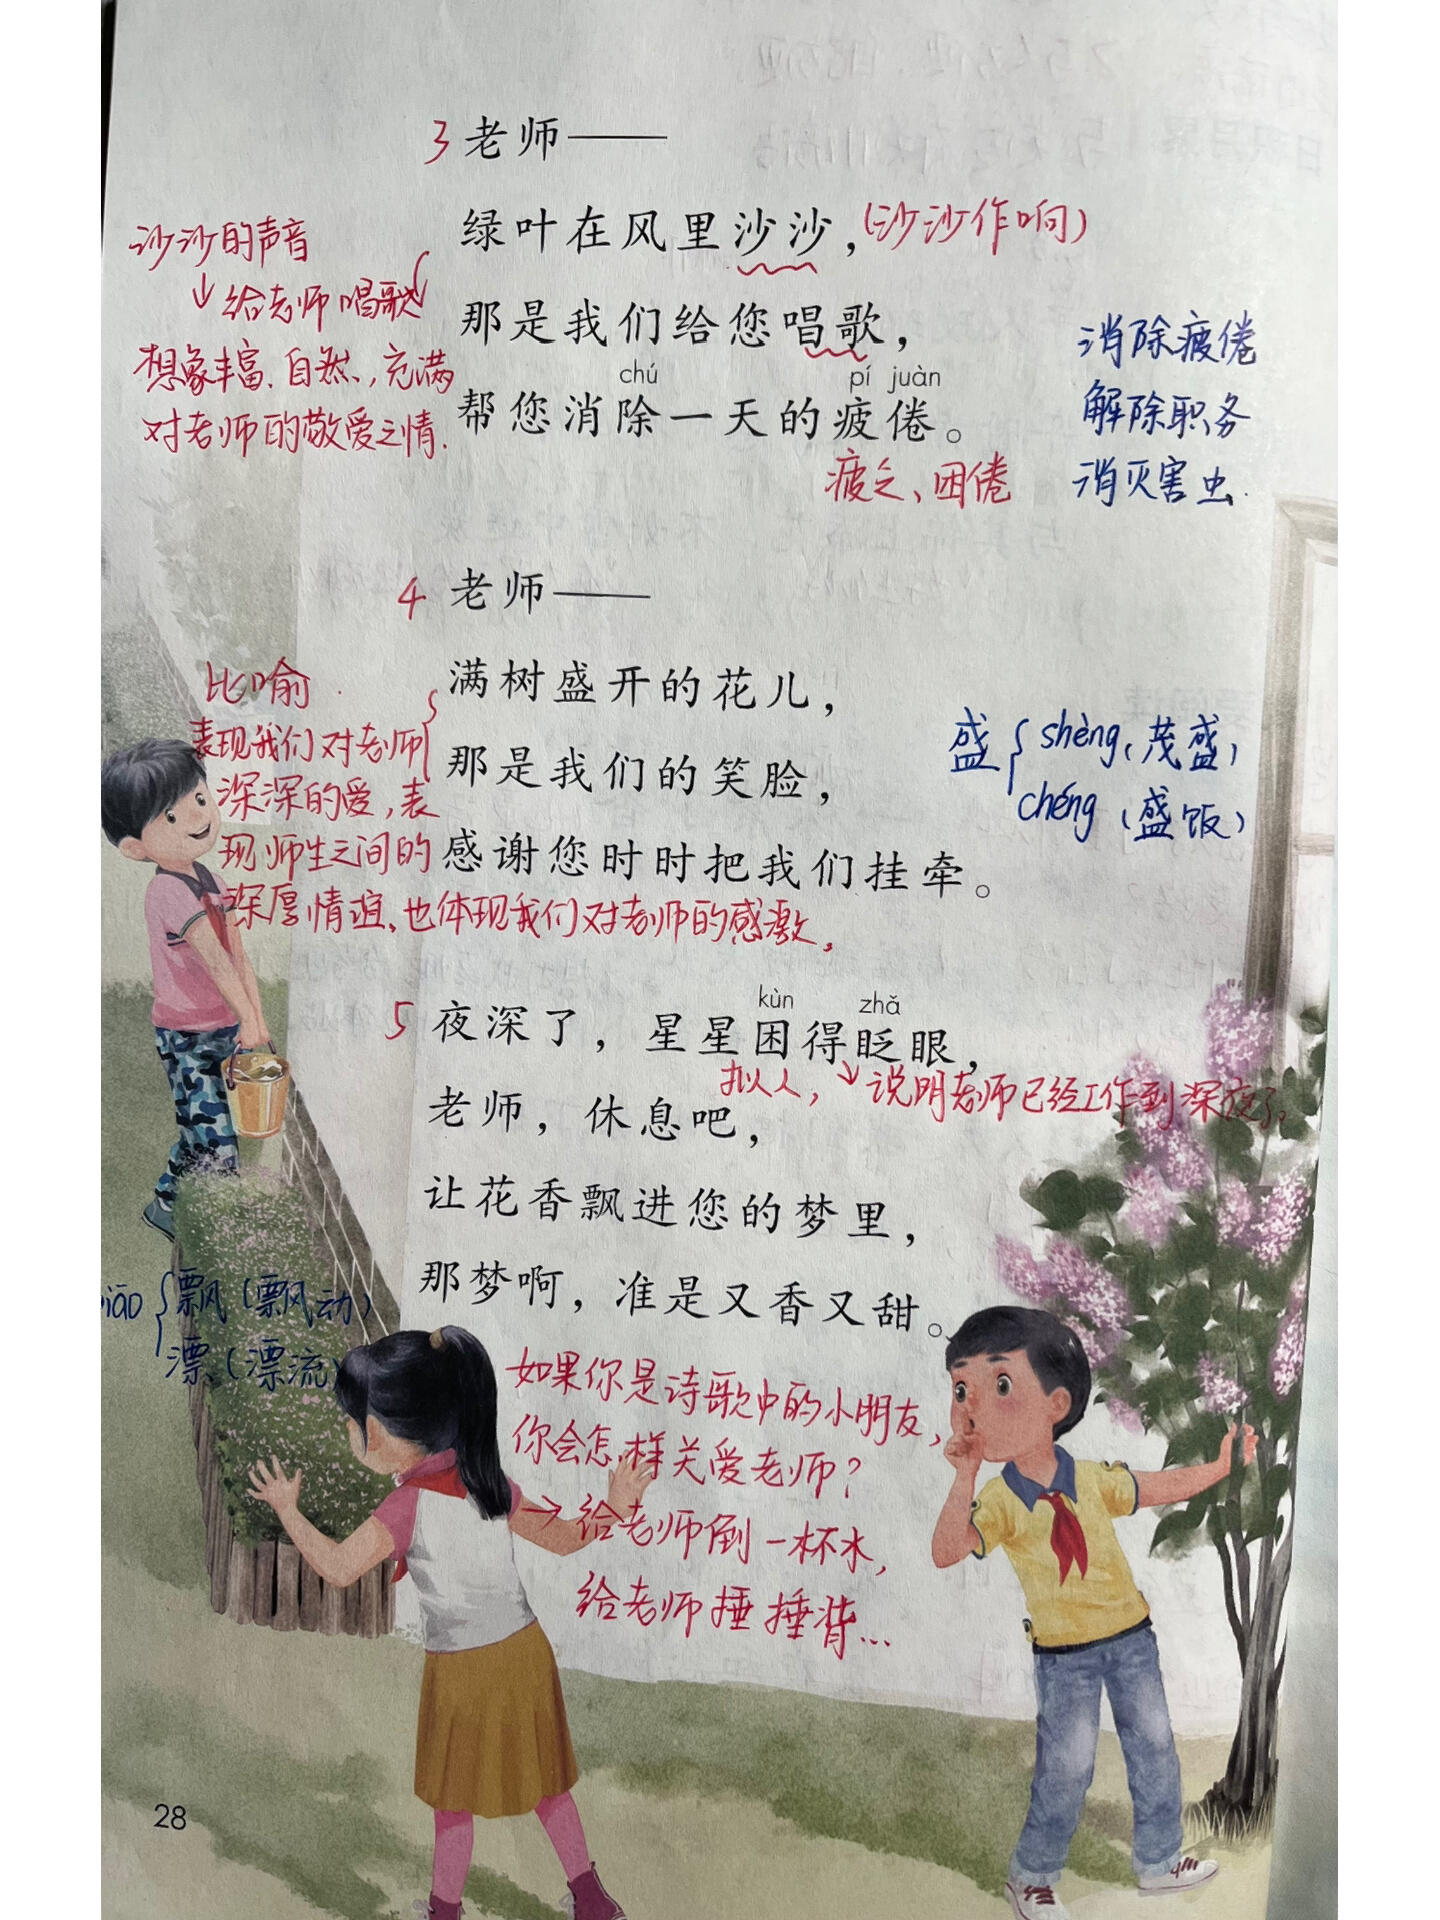 3 老师——
绿叶在风里沙沙，(沙沙作响)
沙沙的声音
↓给老师唱歌
那是我们给您唱歌，
想象丰富、自然、充满
对老师的敬爱之情.
chú pí juàn
帮您消除一天的疲倦。
疲乏、困倦
消除疲倦
解除职务
消灭害虫.
4 老师——
满树盛开的花儿，
那是我们的笑脸，
感谢您时时把我们挂牵。
比喻
表现我们对老师
深深的爱,表
现师生之间的
深厚情谊、也体现我们对老师的感激。
盛{shèng(茂盛)
chéng(盛饭)
kùn zhǎ
5 夜深了，星星困得眨眼，
拟人,↓说明老师已经工作到深夜了。
老师，休息吧，
让花香飘进您的梦里，
那梦啊，准是又香又甜。
iāo{飘(飘动)
漂(漂流)
如果你是诗歌中的小朋友,
你会怎样关爱老师?
→给老师倒一杯水,
给老师捶捶背...
28